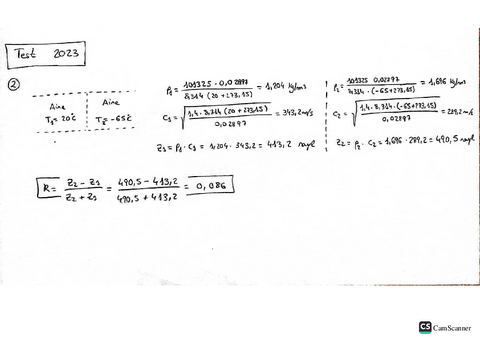 Test 2023
②
Aire
T₁ = 20°C
Aire
T₂ = -65°C
ρ₁ = 101325 · 0,02897 / 8,314 (20 + 273,15) = 1,204 kg/m3
C₁ = √(1,4 · 8,314 (20 + 273,15) / 0,02897) = 343,2 m/s
Z₁ = ρ₁ · C₁ = 1,204 · 343,2 = 413,2 rayl
101325 0,02897 / 8,314 · (-65 + 273,15) = 1,696 kg/m3
C₂ = √(1,4 · 8,314 · (-65 + 273,15) / 0,02897) = 289,2 m/s
Z₂ = ρ₂ · C₂ = 1,696 · 289,2 = 490,5 rayl
R = Z₂ - Z₁ / Z₂ + Z₁ = 490,5 - 413,2 / 490,5 + 413,2 = 0,086
CS CamScanner